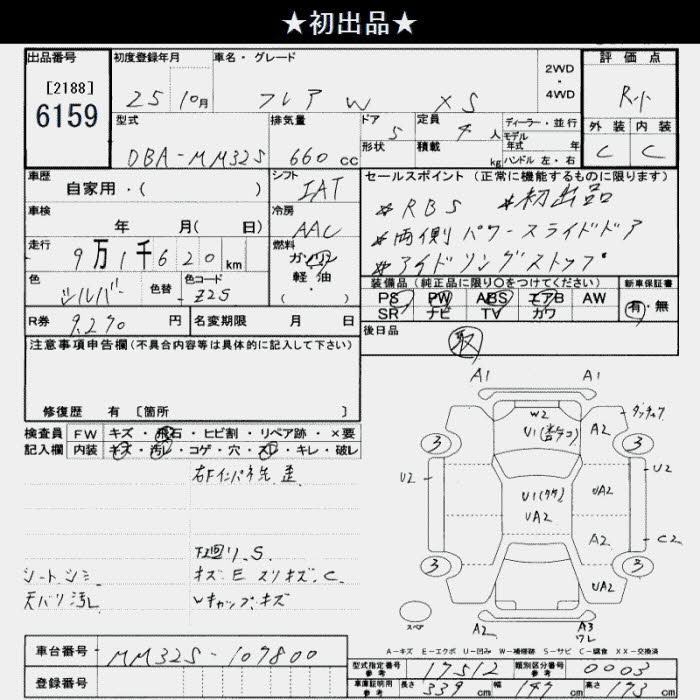 ★初出品★
出品番号
[2188]
6159
初度登録年月
25 10月
車名・グレード
フレア W XS
2WD
・
4WD
評価点
R-ト
外装 内装
C C
型式
DBA-MM32S
排気量
660 cc
ドア 5
形状
定員 4 人
積載 kg
ディーラー・並行
モデル
年式 年
ハンドル 左・右
車歴
自家用・( )
シフト
IAT
車検
年 月( 日)
冷房
AAC
走行
9万1千620km
燃料
ガソリン
軽・油
・
色
シルバー
色替
色コード
Z2S
R券 9,290 円
名変期限 月 日
セールスポイント (正常に機能するものに限ります)
※RBS ※初出品
※両側パワースライドドア
※アイドリングストップ
装備品(純正品に限り○をつけてください)
PS PW ABS エアB AW
SR ナビ TV カワ
新車保証書
有・無
後日品
取
注意事項申告欄(不具合内容等は具体的に記入して下さい)
修復歴 有 [箇所 ]
検査員
記入欄
FW キズ・飛石・ヒビ割・リペア跡・×要
内装 キズ・汚レ・コゲ・穴・スレ・キレ・破レ
右Fインパネ先歪
下廻リ.S.
シートシミ キズ.E スリキズ.C
天バリ汚レ Wキャップ.キズ
A1 A1
W2
U1
A2
3 3
U2 U2
U1
UA2
UA2
A2 C2
3 3
UA2
スペア
A2 A3
ワレ
A-キズ E-エクボ U-凹み W-補修跡 S-サビ C-腐食 XX-交換済
車台番号 MM32S-109800
登録番号
型式指定番号
参考
17512
類別区分番号
参考
0003
車庫証明用
参考
長さ 339 cm 幅 147 cm 高さ 173 cm